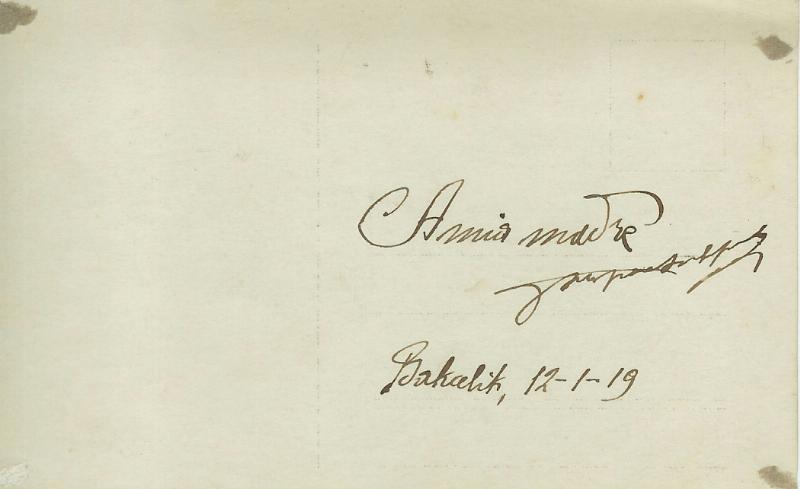 A mia madre
Bakalik, 12-1-19